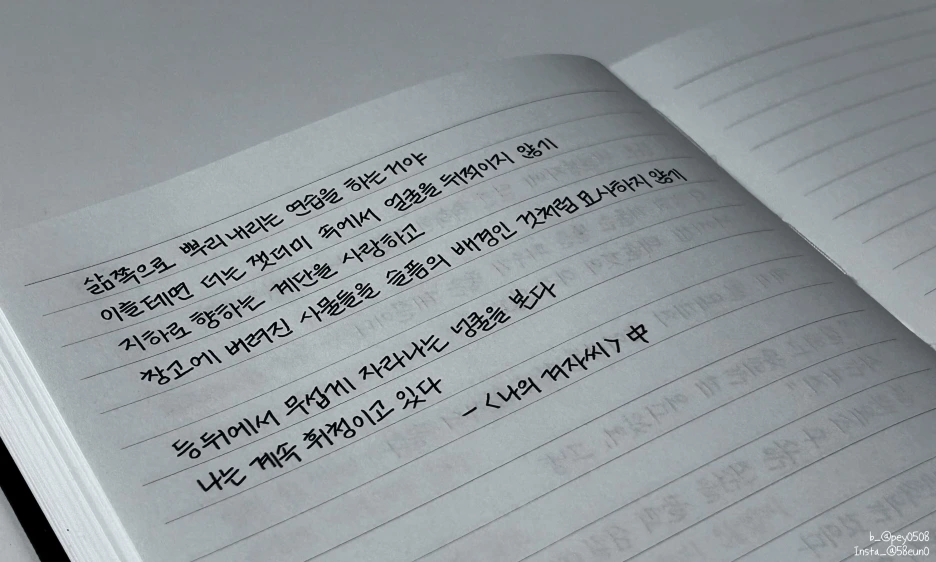 삶쪽으로 뿌리내리는 연습을 하는거야
이를테면 더는 잿더미 속에서 얼굴을 뒤적이지 않기
지하로 향하는 계단을 사랑하고
창고에 버려진 사물들을 슬픔의 배경인 것처럼 묘사하지 않기
등뒤에서 무섭게 자라나는 넝쿨을 본다
나는 계속 휘청이고 있다
- <나의 겨자씨> 中
b_@pey0508
Insta_@58eun0